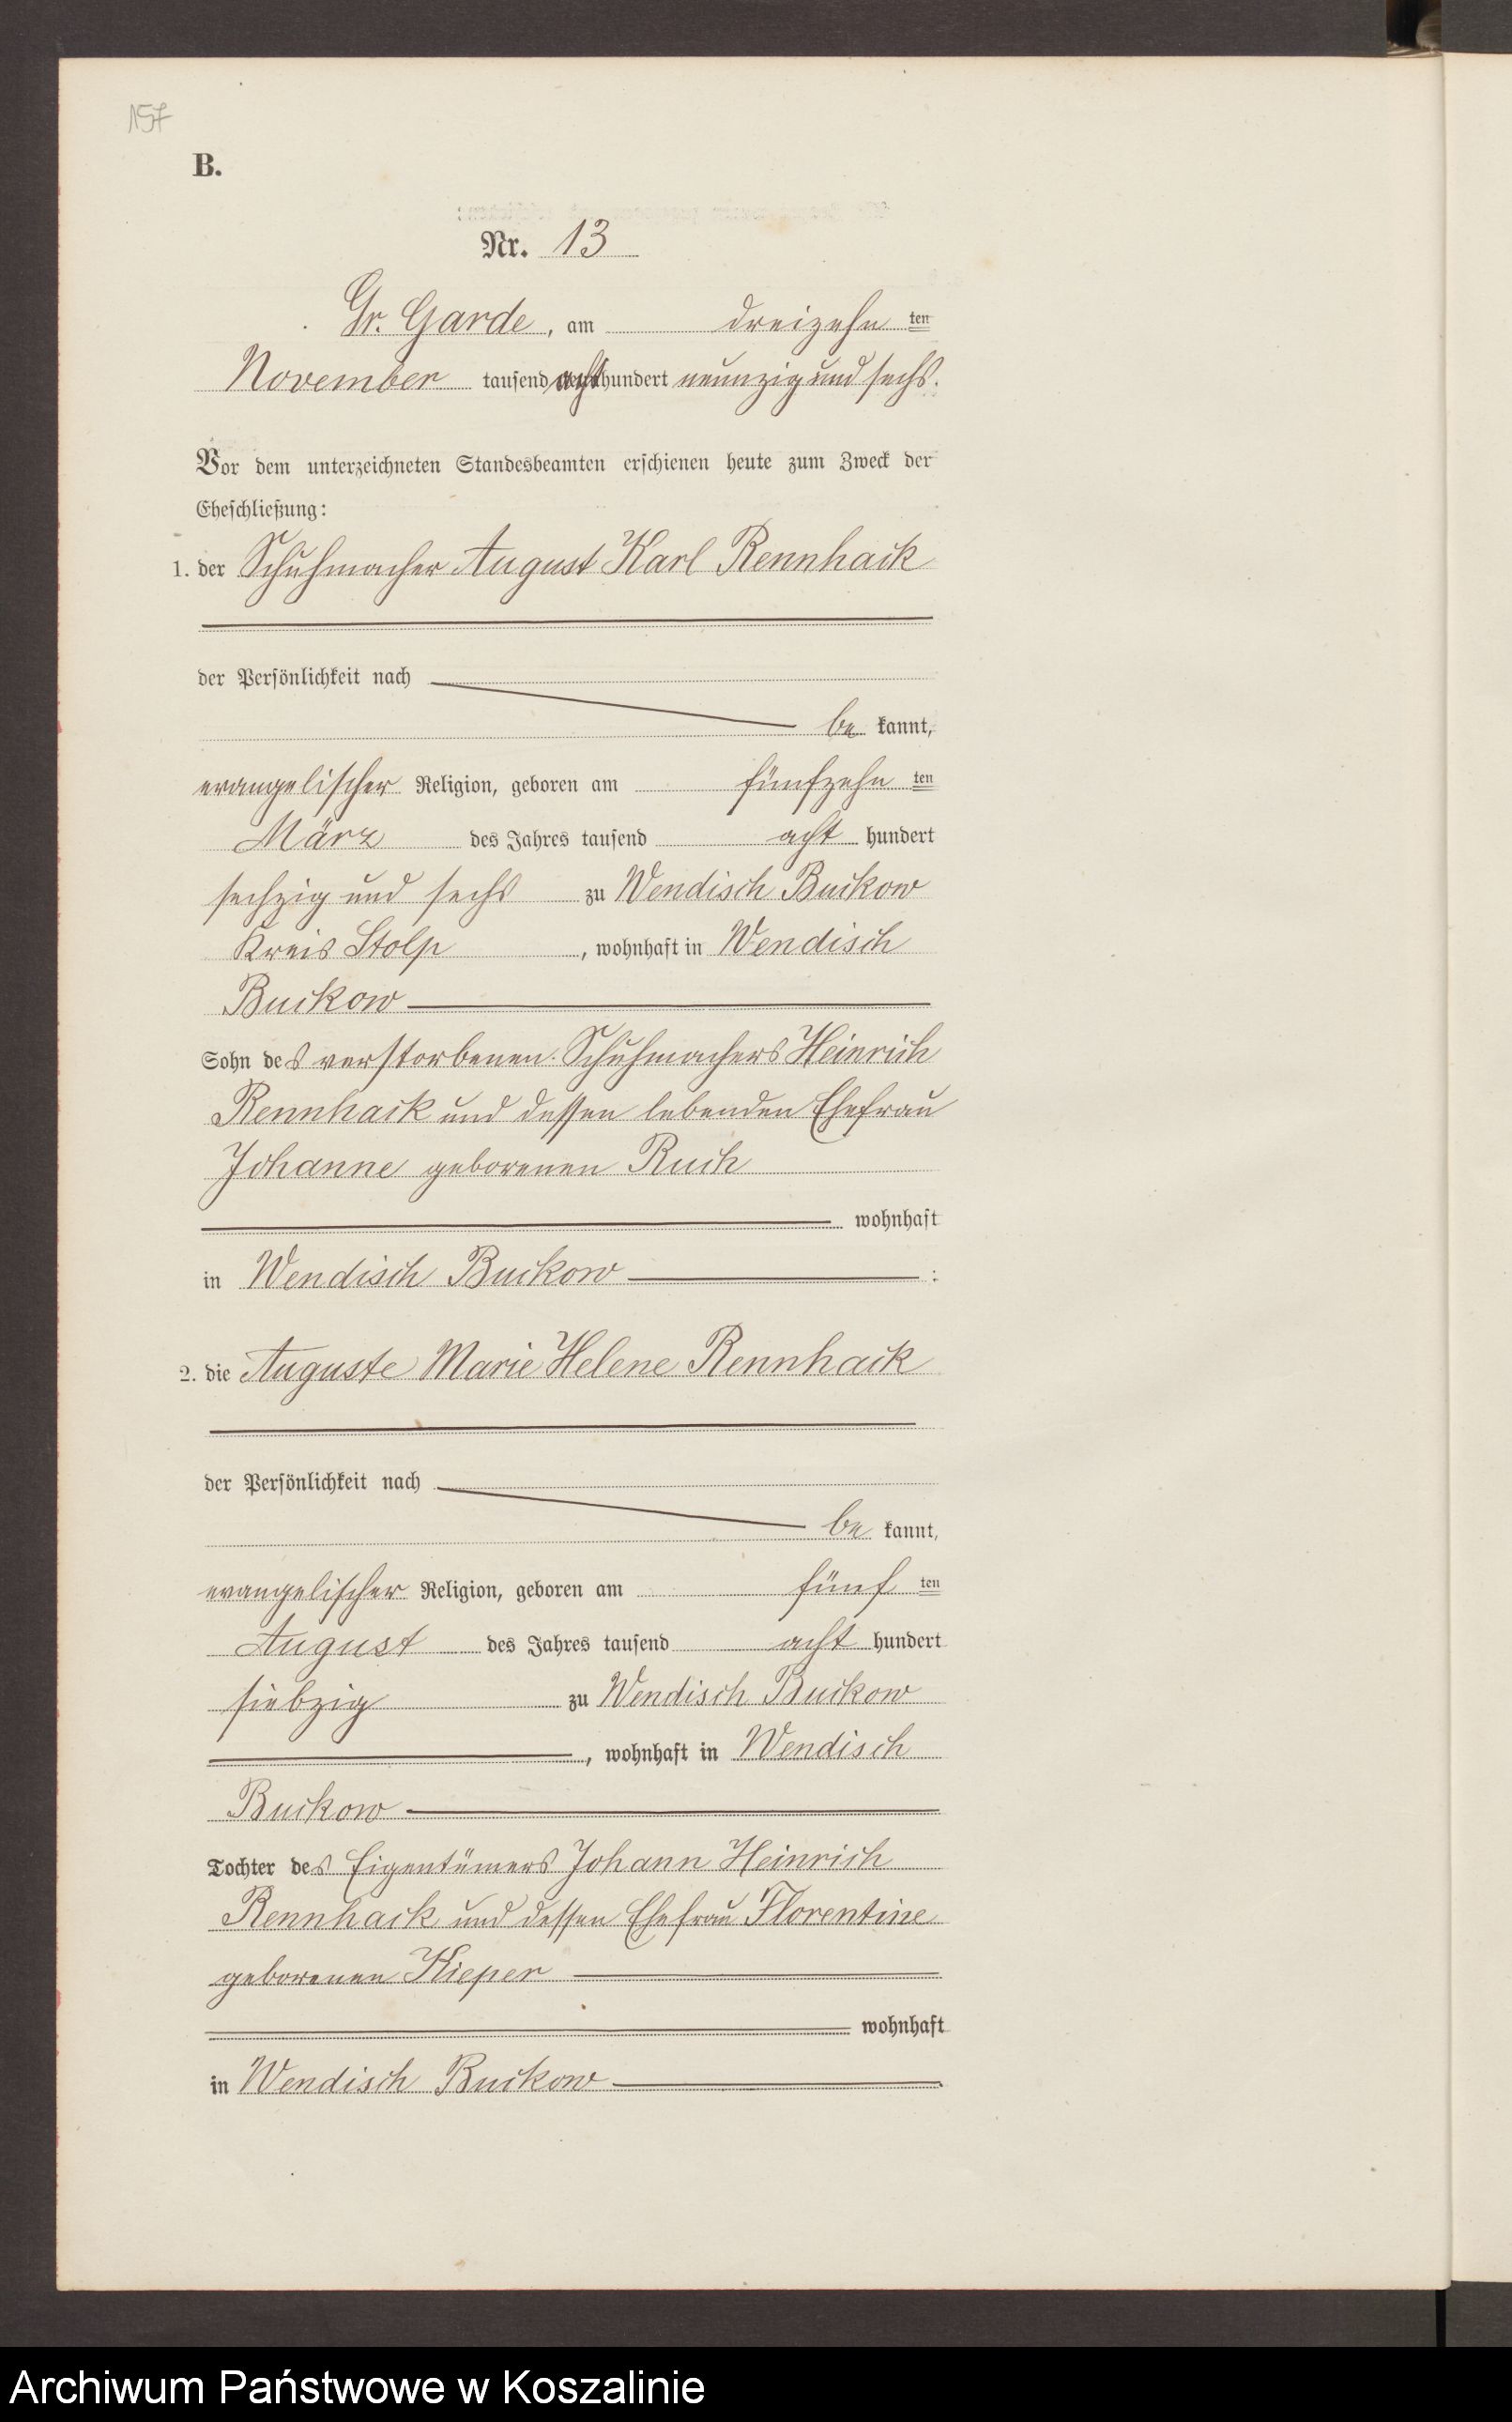 157
B.
Nr. 13
Gr. Garde, am dreizehn ten
November tausend acht hundert neunzig und sechs.
Vor dem unterzeichneten Standesbeamten erschienen heute zum Zweck der
Eheschließung:
1. der Schuhmacher August Karl Rennhack
der Persönlichkeit nach
be kannt,
evangelischer Religion, geboren am fünfzehn ten
März des Jahres tausend acht hundert
sechzig und sechs zu Wendisch Buckow
Kreis Stolp, wohnhaft in Wendisch
Buckow
Sohn des verstorbenen Schuhmachers Heinrich
Rennhack und dessen lebenden Ehefrau
Johanne geborenen Ruch
wohnhaft
in Wendisch Buckow :
2. die Auguste Marie Helene Rennhack
der Persönlichkeit nach
be kannt,
evangelischer Religion, geboren am fünf ten
August des Jahres tausend acht hundert
siebzig zu Wendisch Buckow
, wohnhaft in Wendisch
Buckow
Tochter des Eigentümers Johann Heinrich
Rennhack und dessen Ehefrau Florentine
geborenen Kieper
wohnhaft
in Wendisch Buckow
Archiwum Państwowe w Koszalinie